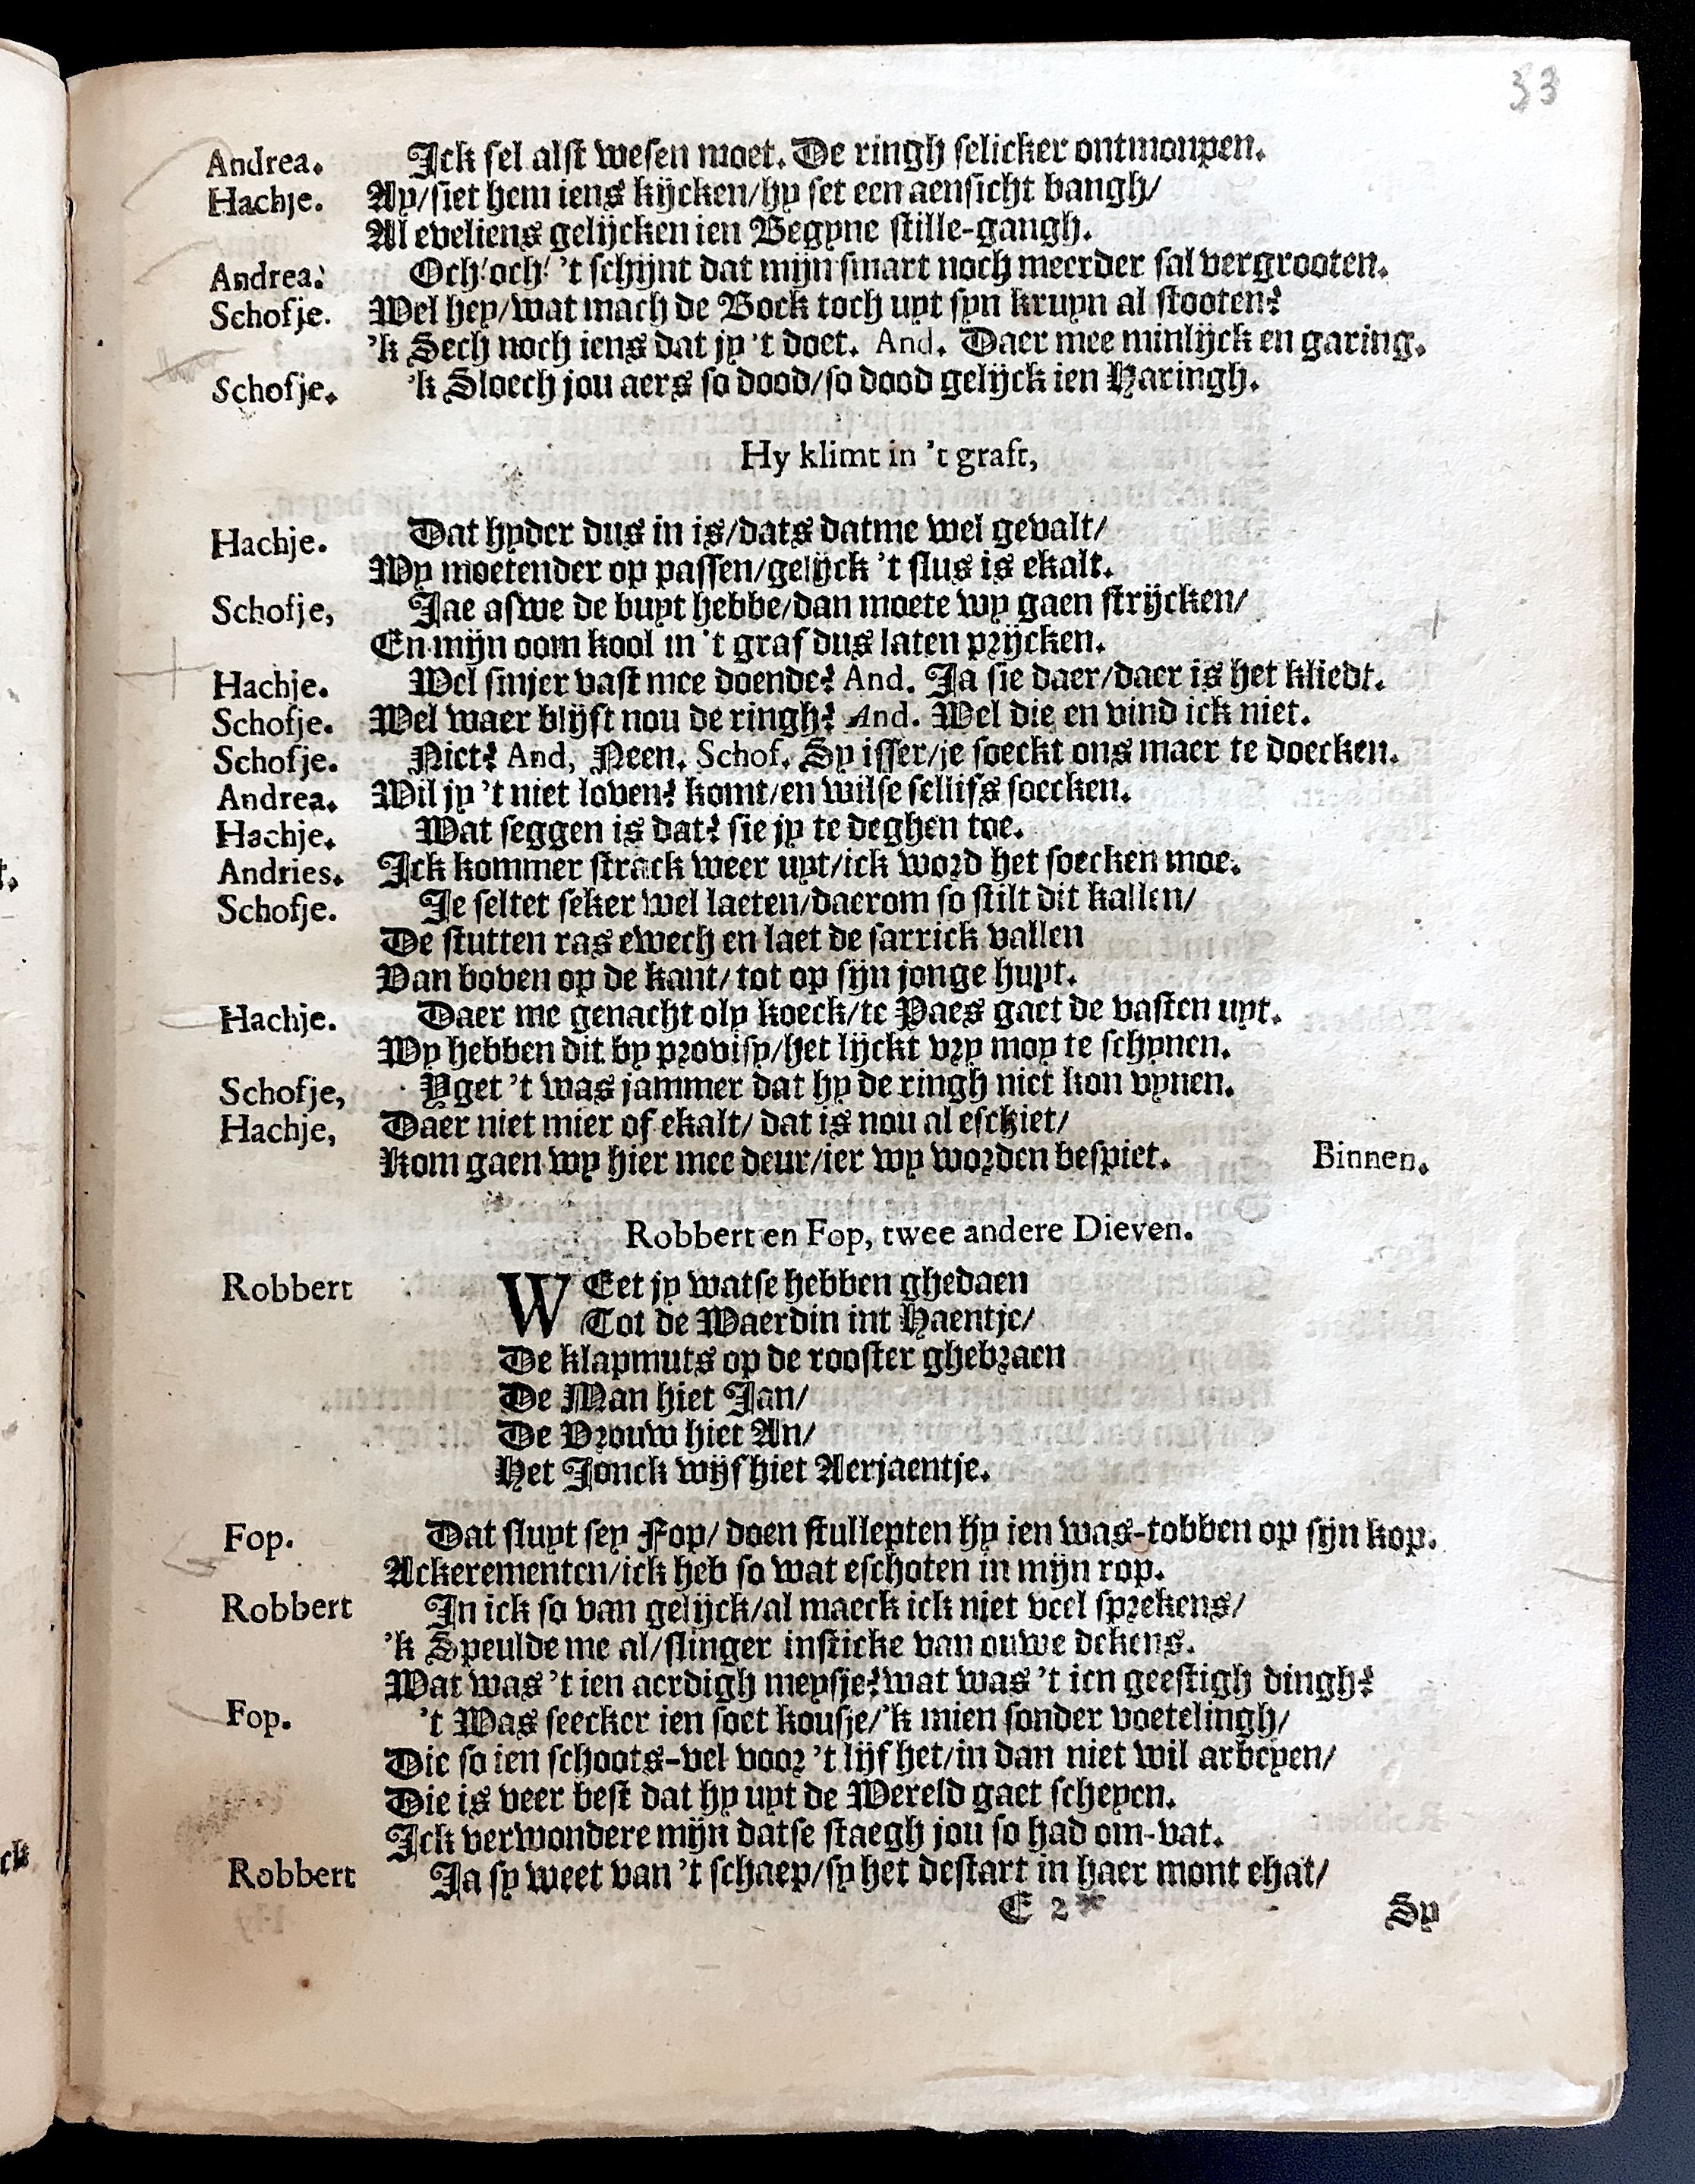 33
Andrea. Ick sel alst wesen moet. De ringh selicker ontmoupen.
Hachje. Ay/siet hem iens kijcken/hy set een aensicht bangh/
Al eveliens gelijcken ien Begyne stille-gangh.
Andrea. Och! och! 't schijnt dat mijn smart noch meerder sal vergrooten.
Schofje. Wel hey/wat mach de Bock toch uyt syn kruyn al stooten?
'k Sech noch iens dat jy 't doet. And. Daer mee minlijck en garing.
Schofje. 'k Sloech jou aers so dood/so dood gelijck ien Haringh.
Hy klimt in 't graft,
Hachje. Dat hyder dus in is/dats datme wel gevalt/
Wy moetender op passen/gelijck 't flus is ekalt.
Schofje, Jae aswe de buyt hebbe/dan moete wy gaen strijcken/
En mijn oom kool in 't graf dus laten prijcken.
Hachje. Wel sinjer vast mee doende? And. Ja sie daer/daer is het kliedt.
Schofje. Wel waer blijft nou de ringh? And. Wel die en vind ick niet.
Schofje. Niet? And, Neen. Schof. Sy isser/je soeckt ons maer te doecken.
Andrea. Wil jy 't niet loven? komt/en wilse sellifs soecken.
Hachje. Wat seggen is dat? sie jy te deghen toe.
Andries. Ick kommer strack weer uyt/ick word het soecken moe.
Schofje. Je seltet seker wel laeten/daerom so stilt dit kallen/
De stutten ras ewech en laet de sarrick vallen
Van boven op de kant/tot op sijn jonge huyt.
Hachje. Daer me genacht oly koeck/te Paes gaet de vasten uyt.
Wy hebben dit by provisy/het lijckt vry moy te schynen.
Schofje, Yget 't was jammer dat hy de ringh niet kon vynen.
Hachje, Daer niet mier of ekalt/dat is nou al eschiet/
Kom gaen wy hier mee deur/ier wy worden bespiet. Binnen.
Robbert en Fop, twee andere Dieven.
Robbert WEet jy watse hebben ghedaen
Tot de Waerdin int Haentje/
De klapmuts op de rooster ghebraen
De Man hiet Jan/
De Vrouw hiet An/
Het Jonck wijf hiet Aerjaentje.
Fop. Dat sluyt sey Fop/doen stullepten hy ien was-tobben op sijn kop.
Ackerementen/ick heb so wat eschoten in mijn rop.
Robbert In ick so van gelijck/al maeck ick niet veel sprekens/
'k Speulde me al/slinger insticke van ouwe dekens.
Wat was 't ien aerdigh meysje? wat was 't ien geestigh dingh?
Fop. 't Was seecker ien soet kousje/'k mien sonder voetelingh/
Die so ien schoots-vel voor 't lijf het/in dan niet wil arbeyen/
Die is veer best dat hy uyt de Wereld gaet scheyen.
Ick verwondere mijn datse staegh jou so had om-vat.
Robbert Ja sy weet van 't schaep/sy het destart in haer mont ehat/
E 2 Sy